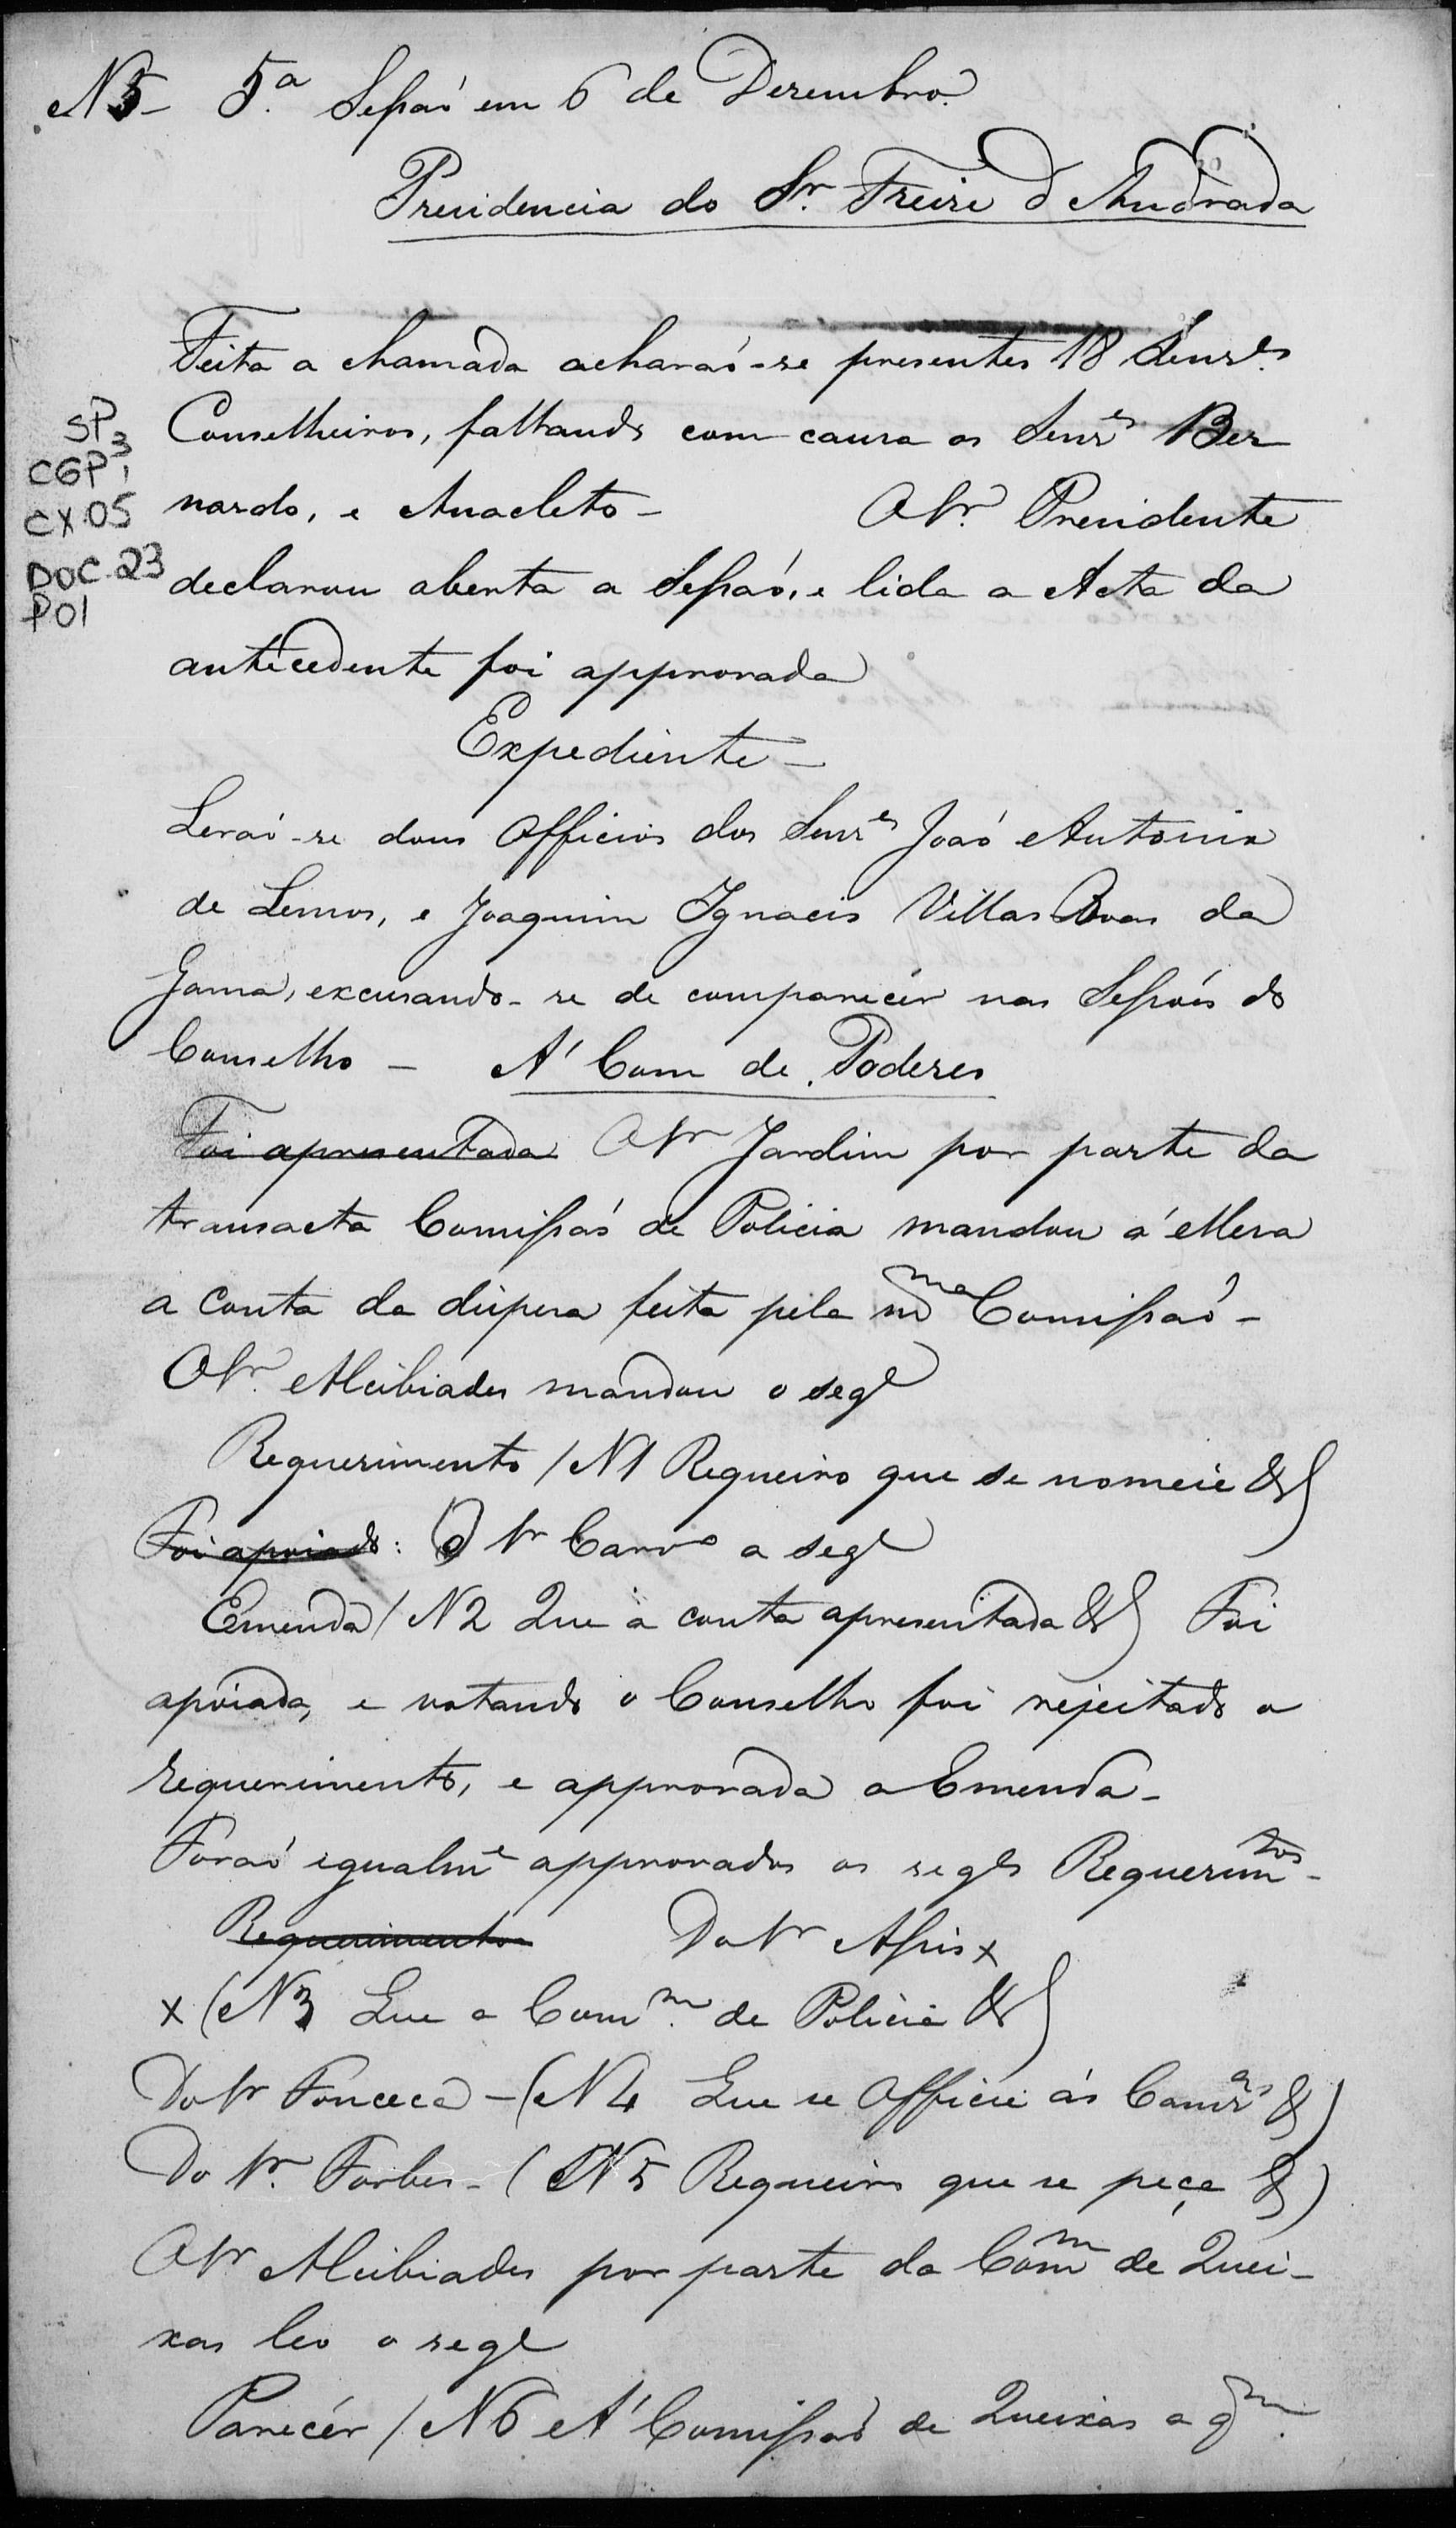 N 5 - 5.ª Sessaõ em 6 de Dezembro.
Prezidencia do Sr. Freire d'Andrada
Feita a chamada acharaõ-se presentes 18 Senr.es
Conselheiros, faltando com causa os Senr.es Ber
nardo, e Anacleto - O Sr. Prezidente
declarou aberta a Sessaõ, e lida a Acta da
antecedente foi approvada
Expediente -
Leraõ-se dous Officios dos Senr.es Joaõ Antonio
de Lemos, e Joaquim Ignacio Villas Boas da
Gama, excusando-se de comparecer nas Sessoẽs do
Conselho - Á Com de Poderes
Foi apresentada O Sr Jardim por parte da
transacta Comissaõ de Policia mandou á Meza
a conta da dispeza feita pela m.ma Comissaõ -
O Sr. Alcibiades mandou o seg.e
Requerimento / N 1 Requeiro que se nomeie &)
Foi apoiado: O Sr Carv.o a seg.e
Emenda / N 2 Que a conta apresentada &) Foi
apoiada, e votando o Conselho foi rejeitado o
requerimento, e approvada a Emenda -
Foraõ igualm.e approvados os seg.es Requerim.tos -
Requerimentos Do Sr Assis x
x (N 3 Que a Com.m de Policia &)
Do Sr Fonceca - (N 4 Que se Officie ás Camr.as &)
Do Sr. Forbes - (N 5 Requeiro que se peça &)
O Sr Alcibiades por parte da Com.m de Quei-
xas leo o seg.e
Parecér / N 6 Á Comissaõ de Queixas a q.m
SP
CGP 3
1
CX.05
DOC.23
P01